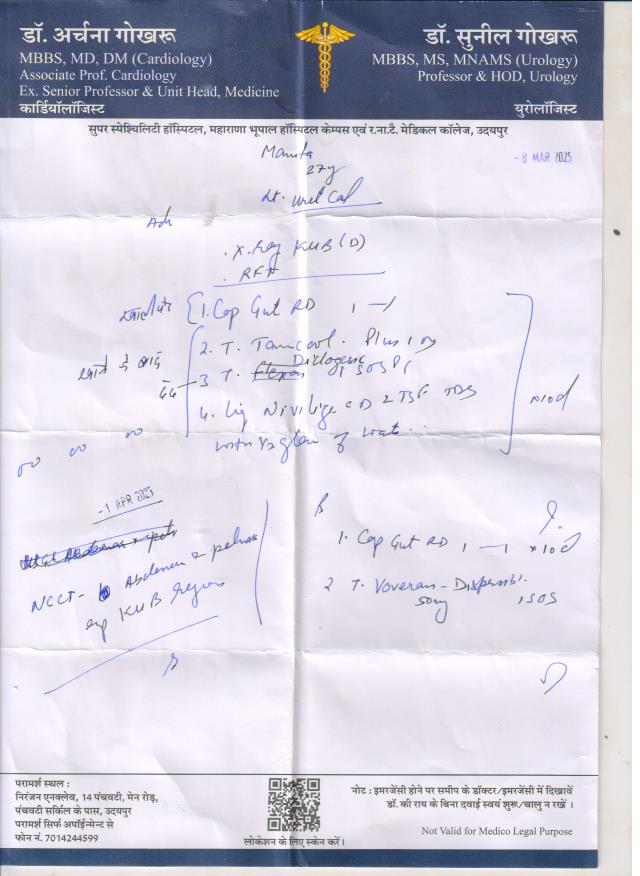 डॉ. अर्चना गोखरू
MBBS, MD, DM (Cardiology)
Associate Prof. Cardiology
Ex. Senior Professor & Unit Head, Medicine
कार्डियॉलॉजिस्ट
डॉ. सुनील गोखरू
MBBS, MS, MNAMS (Urology)
Professor & HOD, Urology
युरोलॉजिस्ट
सुपर स्पेश्यिलिटी हॉस्पिटल, महाराणा भूपाल हॉस्पिटल केम्पस एवं र.ना.टै. मेडिकल कॉलेज, उदयपुर
- 8 MAR 2025
27y
Adv
. X.Ray KUB (D)
. RFT
1. Cap Gut RD 1 — 1
2. T. Plus 1 OD
खाने के बाद
दर्द — 3 T. 1 SOS
4. TSF TDS
x10d
with ½ glass of wat..
- 1 APR 2025
NCCT - Abdomen & pelvis
exp KUB region
1. Cap Gut RD 1 — 1 x10d
2 T. Voveran - Dispersibl.
50mg 1 SOS
परामर्श स्थल :
निरंजन एनक्लेव, 14 पंचवटी, मेन रोड़,
पंचवटी सर्किल के पास, उदयपुर
परामर्श सिर्फ अपॉईन्मेन्ट से
फोन नं. 7014244599
लोकेशन के लिए स्कैन करें।
नोट : इमरजेंसी होने पर समीप के डॉक्टर/इमरजेंसी में दिखावें
डॉ. की राय के बिना दवाई स्वयं शुरू/चालु न रखें ।
Not Valid for Medico Legal Purpose